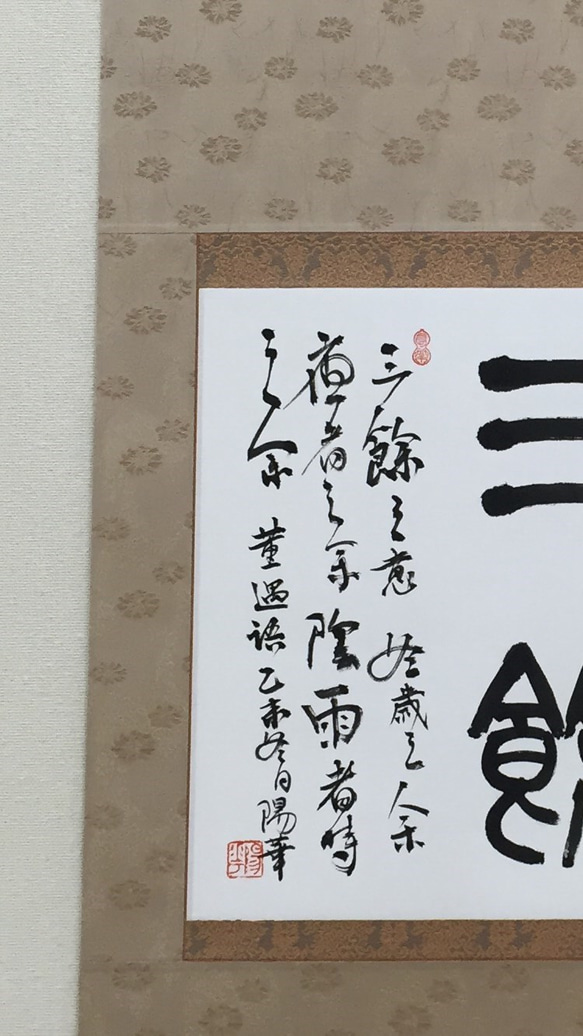 三餘
三餘之意 冬歲之余
夜者之余 陰雨者時
之余 董遇語 乙未冬日 陽華